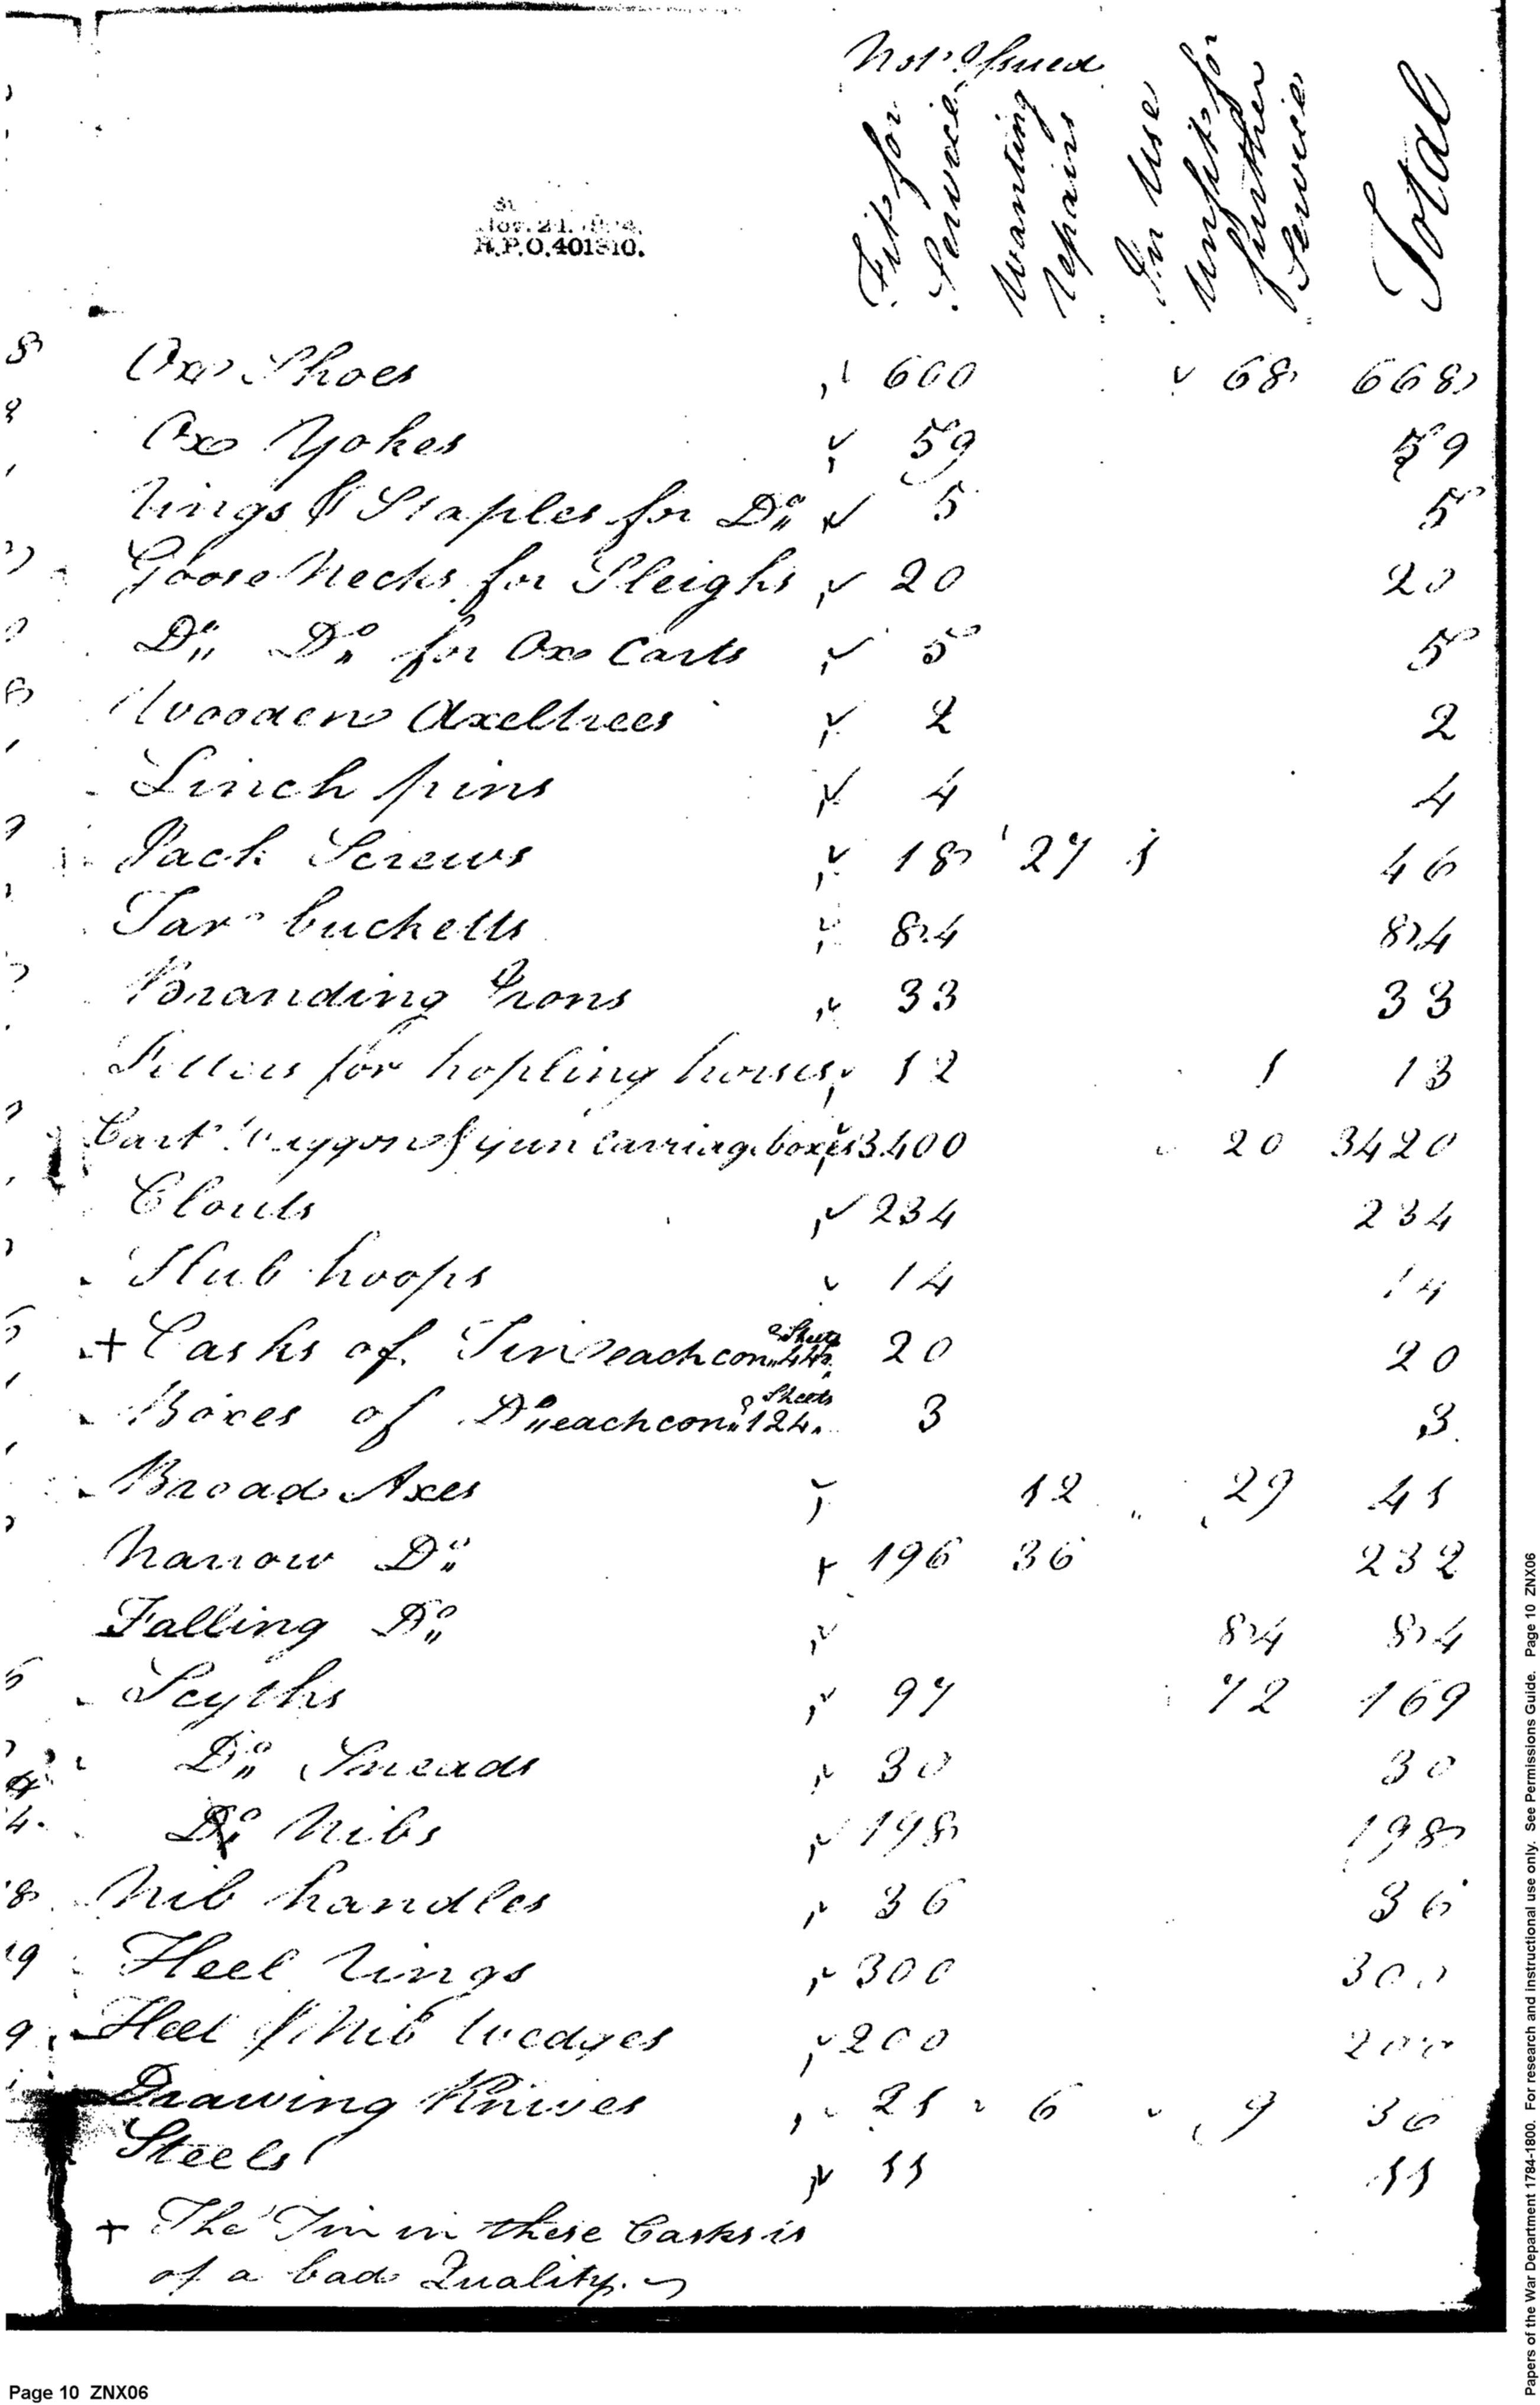 Not Issued
Fit for Service
Wanting repairs
In Use
Unfit for further Service
Total
R.P.O. 401310.
Ox Shoes 600 68 668
Ox Yokes 59 59
rings & Staples for Do 5 5
Goose Necks for Sleighs 20 20
Do Do for Ox Carts 5 5
Wooden Axeltrees 2 2
Linch pins 4 4
Jack Screws 18 27 1 46
Tar bucketts 84 84
Branding Irons 33 33
Fetters for hopling horses 12 1 13
Cart Waggon & gun carriage boxes 3400 20 3420
Clouts 234 234
Hub hoops 14 14
+ Casks of Tin each cong 445 Sheets 20 20
Boxes of Do each cong 124 Sheets 3 3
Broad Axes 12 29 41
Narrow Do 196 36 232
Falling Do 84 84
Scyths 97 72 169
Do Sneads 30 30
Do Nibs 198 198
Nib handles 36 36
Heel rings 300 300
Heel & Nib Wedges 200 200
Drawing Knives 21 6 9 36
Steels 11 11
+ The Tin in these Casks is
of a bad Quality.
Page 10 ZNX06
Papers of the War Department 1784-1800. For research and instructional use only. See Permissions Guide. Page 10 ZNX06